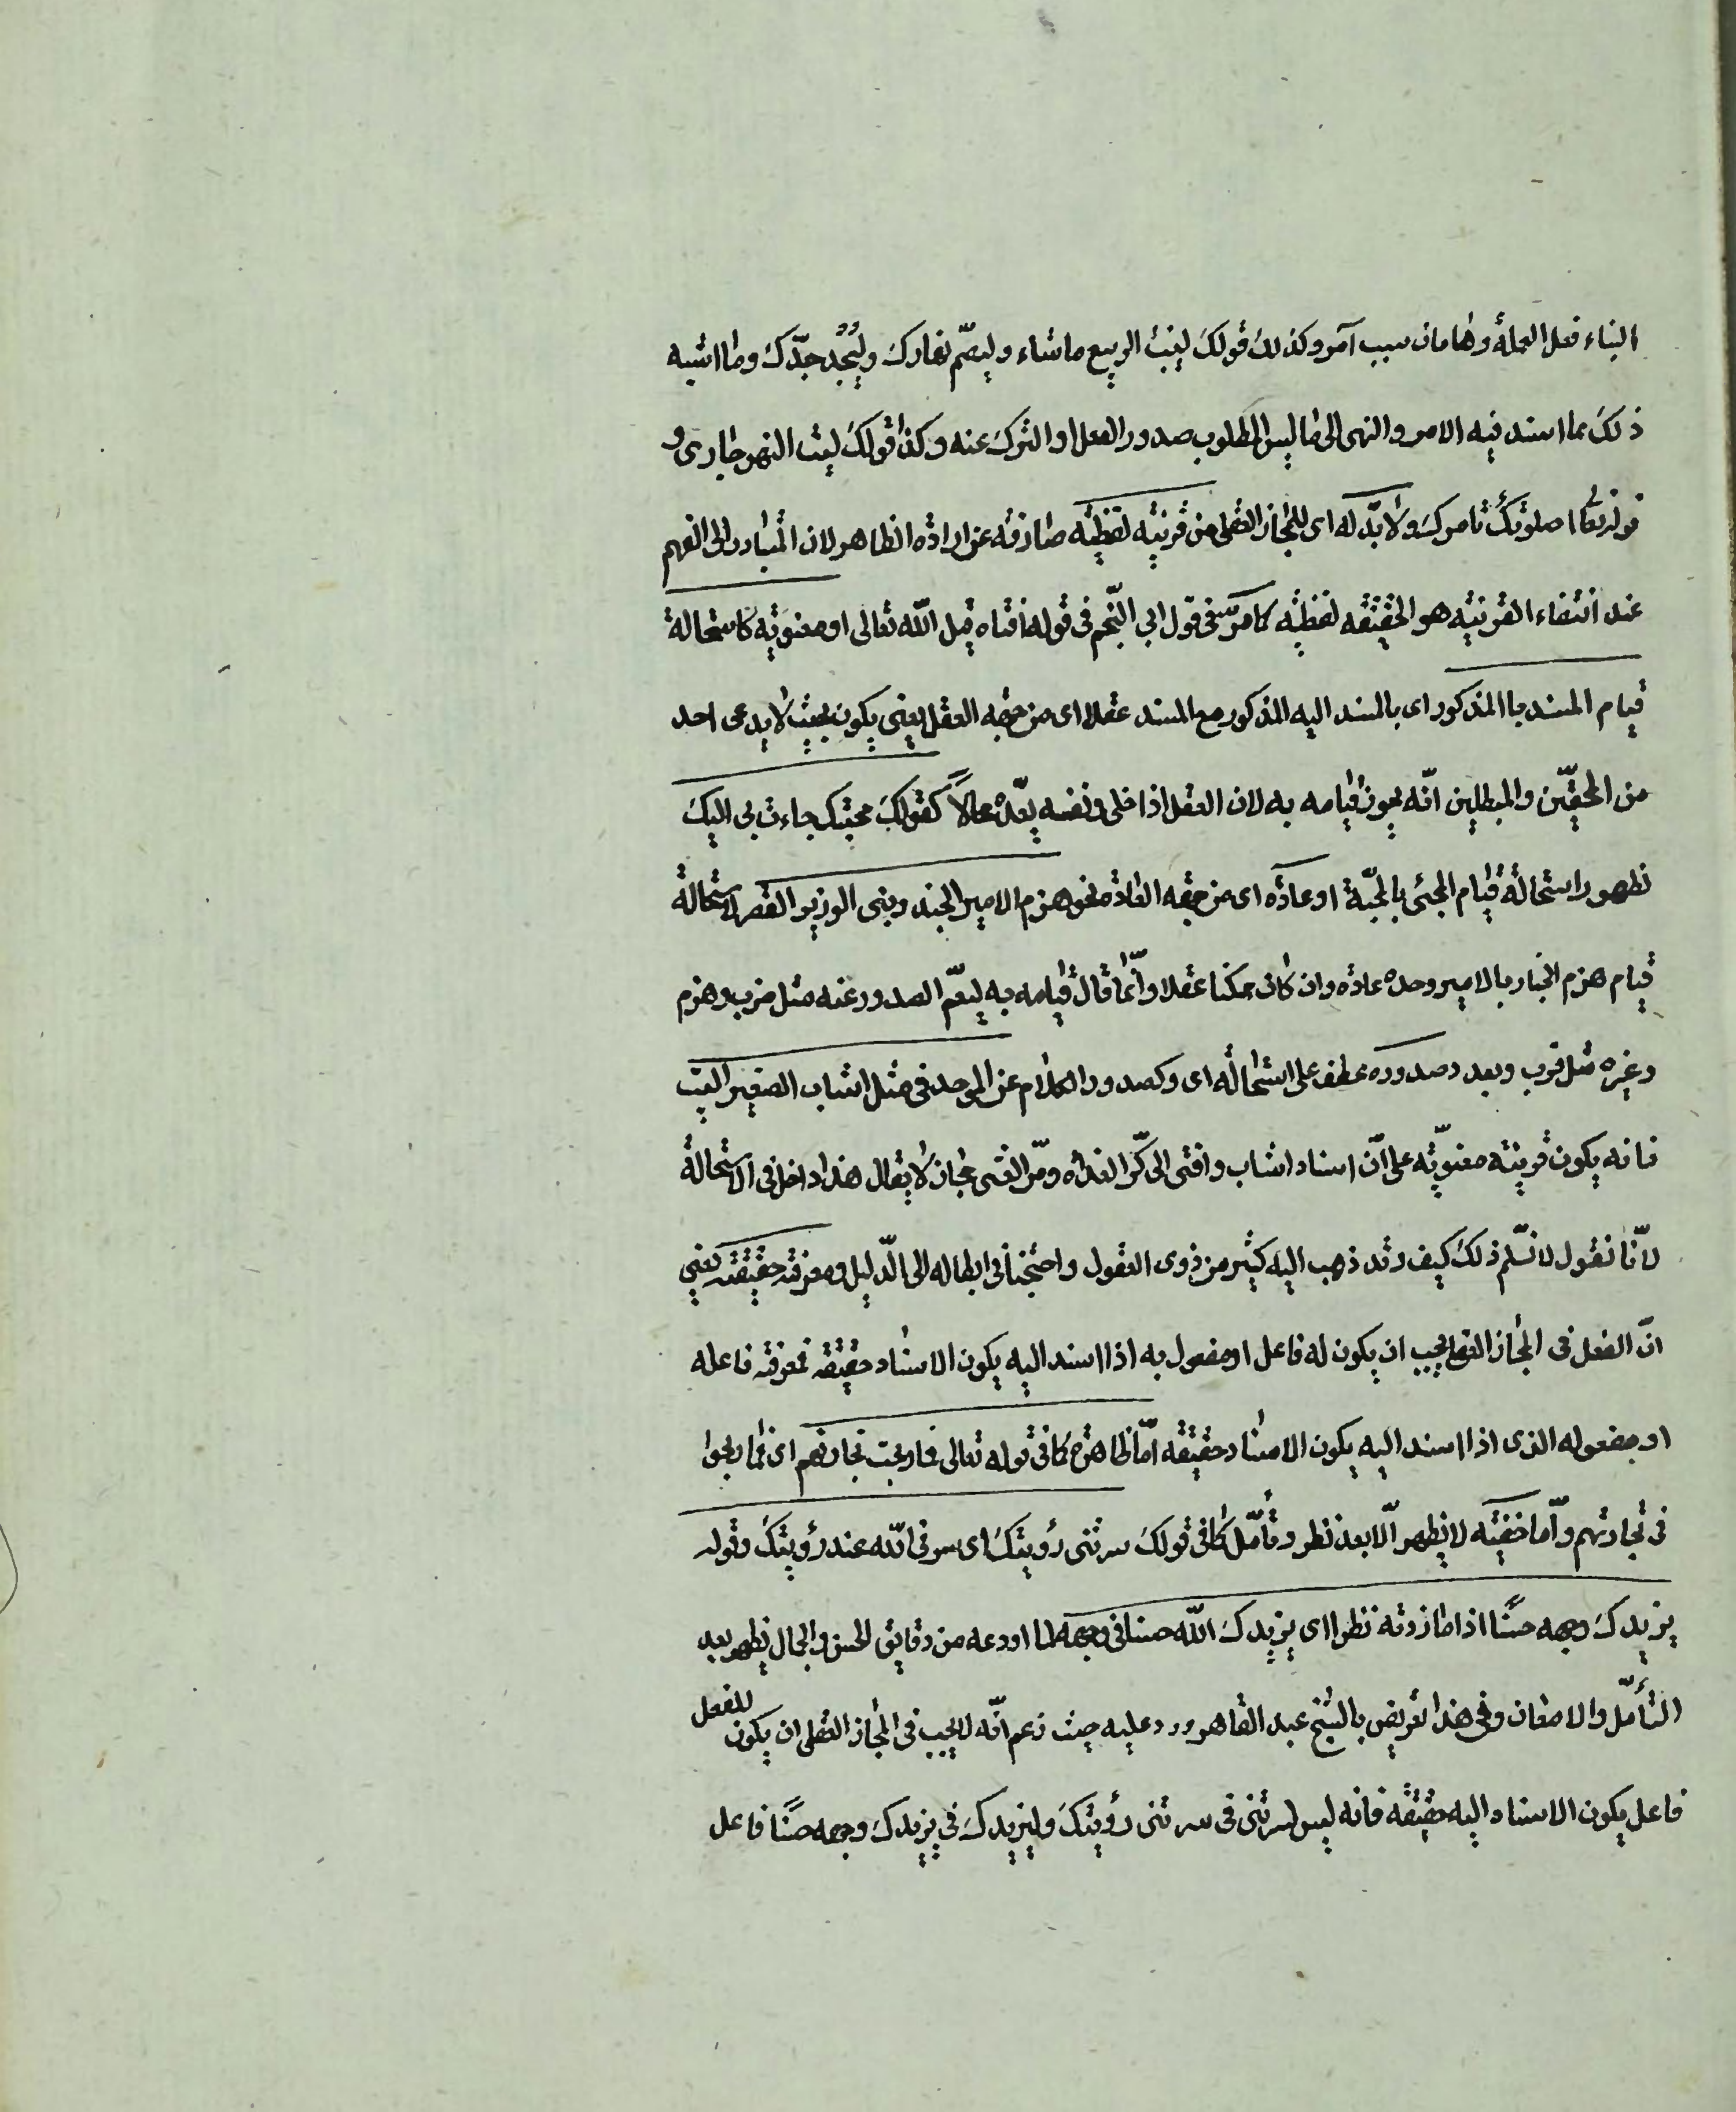 البناء فعل العملة وهامان سبب آمر وكذلك قولك لينبت الربيع ما شاء وليصم نهارك وليجد جدّك وما اشبه
ذلك مما اسند فيه الامر والنهى الى ما ليس المطلوب صدور الفعل او الترك عنه وكذا قولك ليت النهر جارى و
قوله تعا اصلوتك تامرك ولا بدّ له اى للمجاز العقلى من قرينة لفظية صارفة عن ارادة الظاهر لان المتبادر الى الفهم
عند انتفاء القرينة هو الحقيقة لفظية كما مرّ فى قول ابي النّجم فى قوله افناه قيل اللّه تعالى او معنوية كاستحالة
قيام المسند با المذكور اى بالمسند اليه المذكور مع المسند عقلا اى من جهة العقل يعنى يكون بحيث لا يدعى احد
من المحقّين والمبطلين انّه يجوز قيامه به لان العقل اذا خلى ونفسه يعدّه محالاً كقولك محبتك جاءت بى اليك
لظهور استحالة قيام المجئى بالمحبّة او عادة اى من جهة العادة نحو هزم الامير الجند وبنى الوزير القصر لاستحالة
قيام هزم الجند بالامير وحده عادة وان كان ممكنا عقلا وانّما قال قيامه به ليعمّ الصدور عنه مثل ضرب وهزم
وغيره مثل قرب وبعد وصدوره عطف على استحالة اى وكصدور الكلام عن الموحد فى مثل اشاب الصغير البيت
فانه يكون قرينة معنويّة على انّ اسناد اشاب وافنى الى كرّ الغداة ومرّ العشى مجاز لا يقال هذا داخل فى الاستحالة
لانّا نقول لا نسلّم ذلك كيف وقد ذهب اليه كثير من ذوى العقول واحتجنا فى ابطاله الى الدّليل ومعرفة حقيقته يعنى
انّ الفعل فى المجاز العقلى يجب ان يكون له فاعل او مفعول به اذا اسند اليه يكون الاسناد حقيقة فمعرفة فاعله
او مفعوله الذى اذا اسند اليه يكون الاسناد حقيقة امّا ظاهرة كما فى قوله تعالى فما ربحت تجارتهم اى فما ربحوا
فى تجارتهم وامّا خفيّة لا يظهر الّا بعد نظر وتأمّل كما فى قولك سرتنى رؤيتك اى سرنى اللّه عند رؤيتك وقوله
يزيدك وجهه حسنًا اذا ما زدته نظرا اى يزيدك اللّه حسنا فى وجهه لما اودعه من دقايق الحسن والجمال يظهر بعد
التأمّل والامعان وفى هذا تعريض بالشيخ عبد القاهر ورد عليه حيث زعم انّه لا يجب فى المجاز العقلى ان يكون للفعل
فاعل يكون الاسناد اليه حقيقة فانه ليس لسرتنى فى سرتنى رؤيتك وليزيدك فى يزيدك وجهه حسنًا فاعل